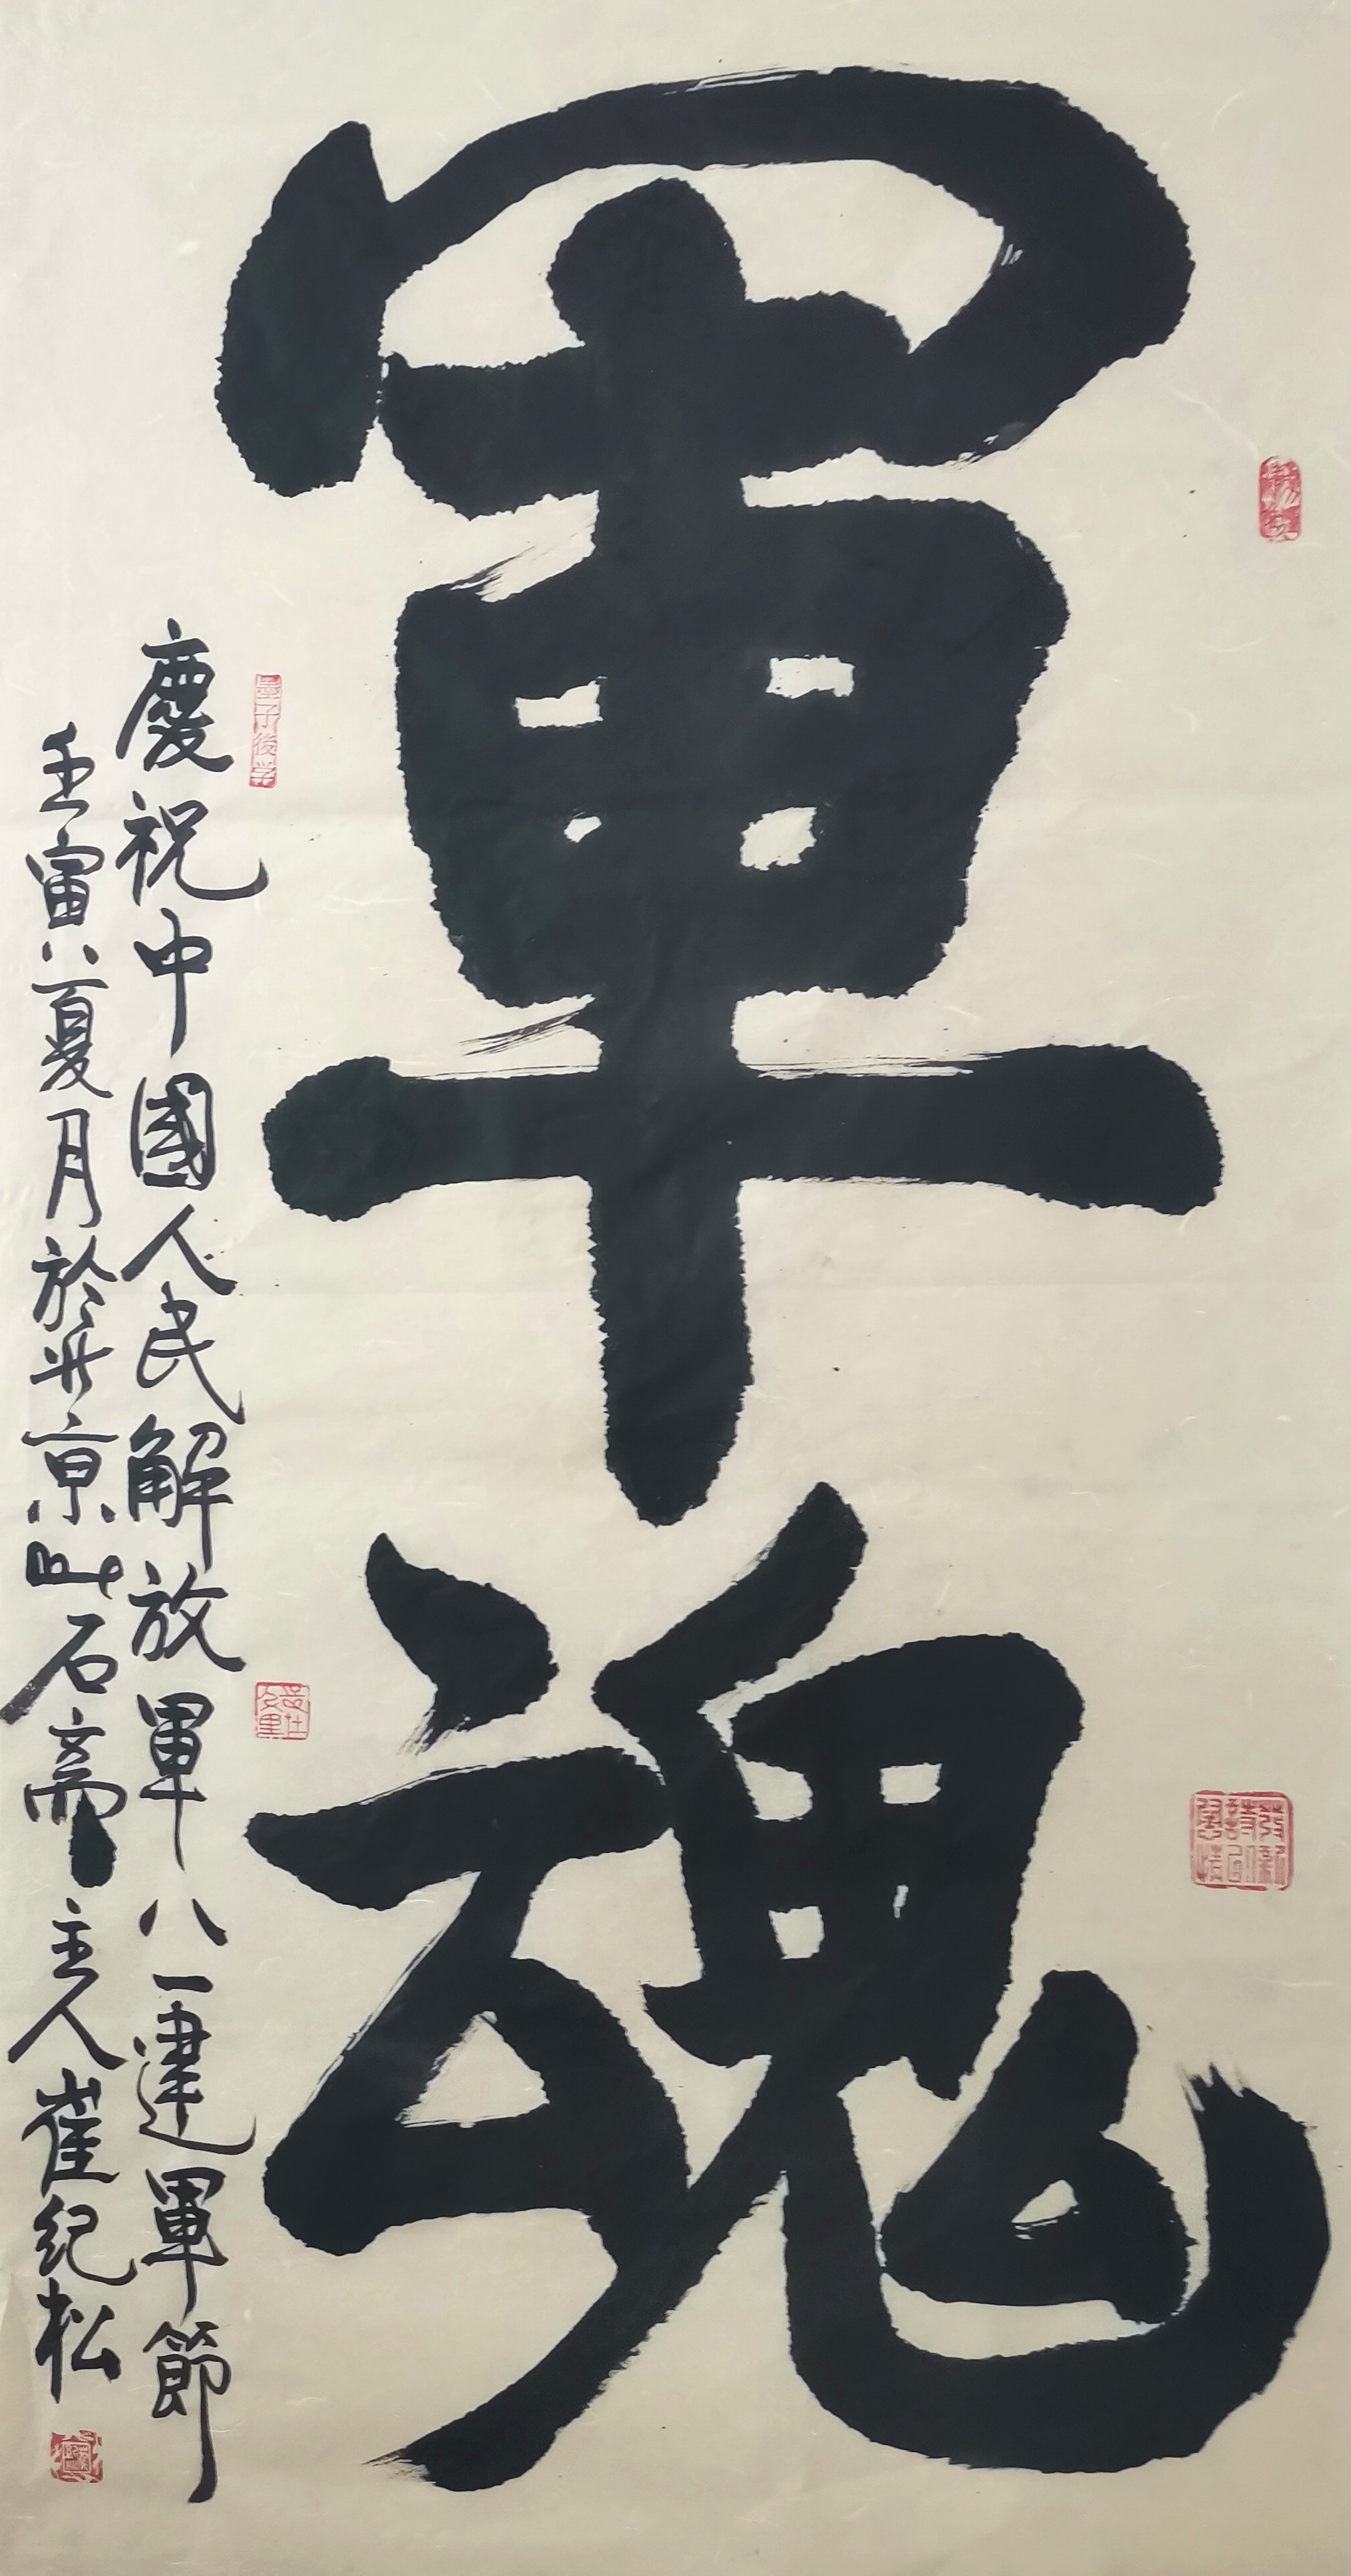 軍魂
慶祝中國人民解放軍八一建軍節
壬寅夏月於北京山石齋主人崔纪松
墨子後学